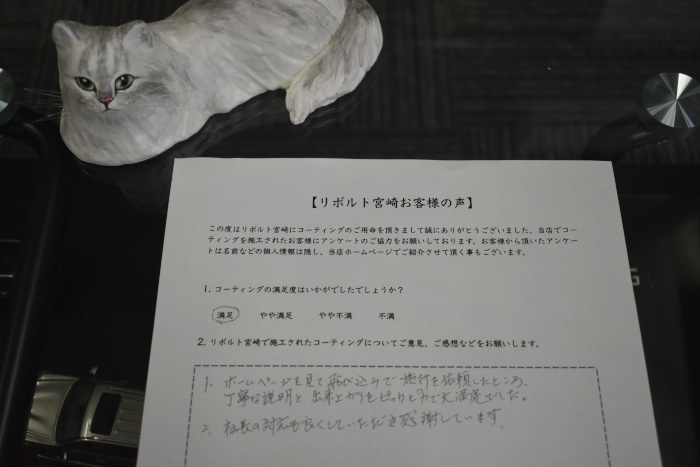 【リボルト宮崎お客様の声】
この度はリボルト宮崎にコーティングのご用命を頂きまして誠にありがとうございました。当店でコー
ティングを施工されたお客様にアンケートのご協力をお願いしております。お客様から頂いたアンケー
トは名前などの個人情報は隠し、当店ホームページでご紹介させて頂く事もございます。
1. コーティングの満足度はいかがでしたでしょうか？
満足 やや満足 やや不満 不満
2. リボルト宮崎で施工されたコーティングについてご意見、ご感想などをお願いします。
1. ホームページを見て飛び込みで施行を依頼したところ、
丁寧な説明と、出来上がりもビックリで大満足でした。
2. 社長の対応も良くしていただき感謝しています。
G